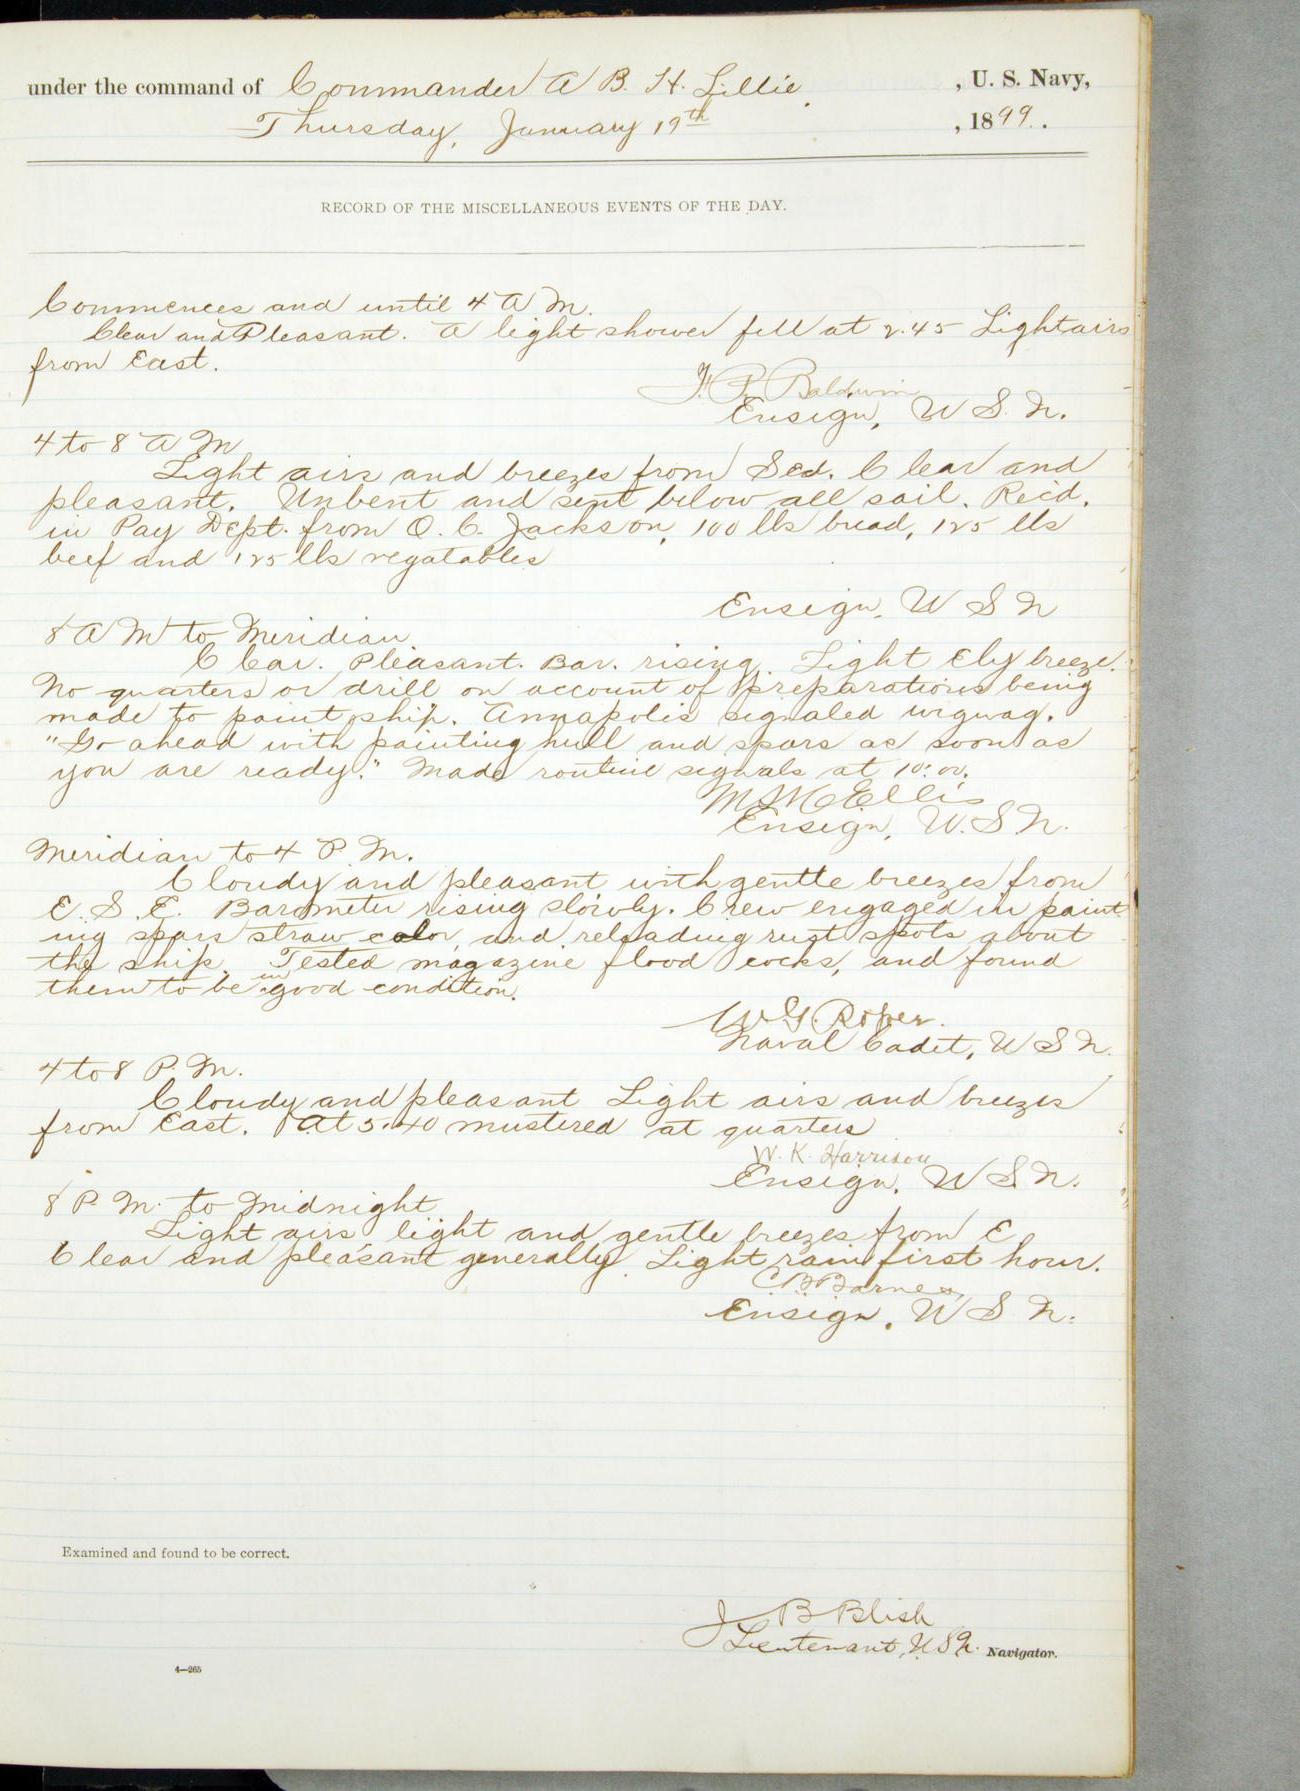 under the command of Commander A B. H. Lillie. , U. S. Navy,
Thursday, January 19th , 1899.
RECORD OF THE MISCELLANEOUS EVENTS OF THE DAY.
Commences and until 4 A M.
Clear and Pleasant. A light shower fell at 2.45 Light airs
from East.
F. P. Baldwin
Ensign, U S. N.
4 to 8 A M
Light airs and breezes from Sed. Clear and
pleasant. Unbent and sent below all sail. Rec'd.
in Pay Dept. from O. C. Jackson, 100 lbs bread, 125 lbs
beef and 125 lbs vegatables
Ensign, U S N
8 A M to Meridian
Clear. Pleasant. Bar. rising. Light Ely breeze.
No quarters or drill on account of preparations being
made to paint ship. Annapolis signaled wigwag.
"Go ahead with painting hull and spars as soon as
you are ready." Made routine signals at 10:00.
M St C Ellis
Ensign, U. S N.
Meridian to 4 P. M.
Cloudy and pleasant with gentle breezes from
E. S. E. Barometer rising slowly. Crew engaged in paint-
ing spars straw color, and releading rust spots about
the ship. Tested magazine flood cocks, and found
them to be in good condition.
W G. Roper.
Naval Cadet, U S N.
4 to 8 P. M.
Cloudy and pleasant Light airs and breezes
from East. At 5.40 mustered at quarters
W. K. Harrison
Ensign, U S. N.
8 P. M. to Midnight
Light airs light and gentle breezes from E
Clear and pleasant generally. Light rain first hour.
C B Barnes,
Ensign, U S N.
Examined and found to be correct.
J B Blish
Lieutenant, U S N. Navigator.
4—265